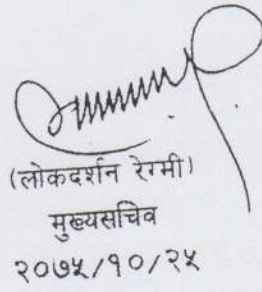 (लोकदर्शन रेग्मी)
मुख्यसचिव
२०७५/१०/२५